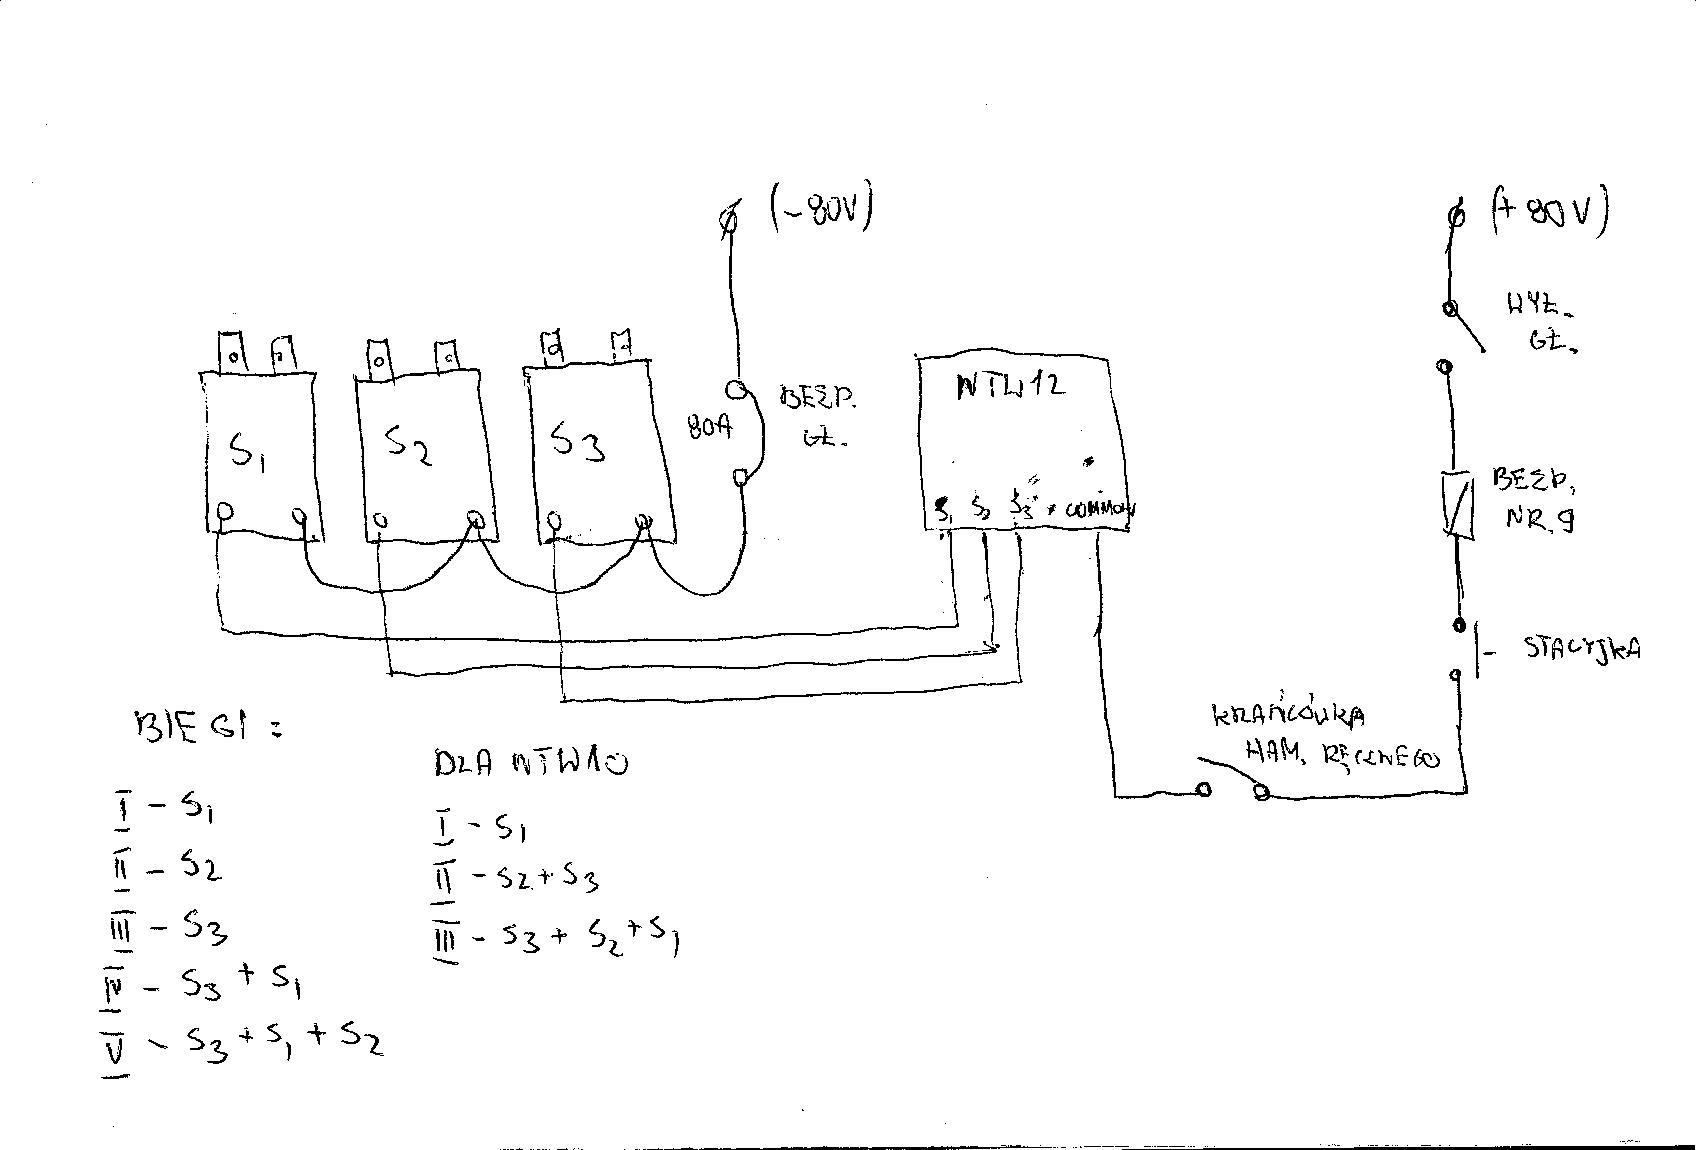 (-80V)
(+80V)
WYŁ.
GŁ.
BEZP.
GŁ.
80A
NTW12
S1
S2
S3
S1 S2 S3 COMMON
BEZP.
NR.9
STACYJKA
KRAŃCÓWKA
HAM. RĘCZNEGO
BIEGI =
I - S1
II - S2
III - S3
IV - S3 + S1
V - S3 + S1 + S2
DLA NTW10
I - S1
II - S2 + S3
III - S3 + S2 + S1